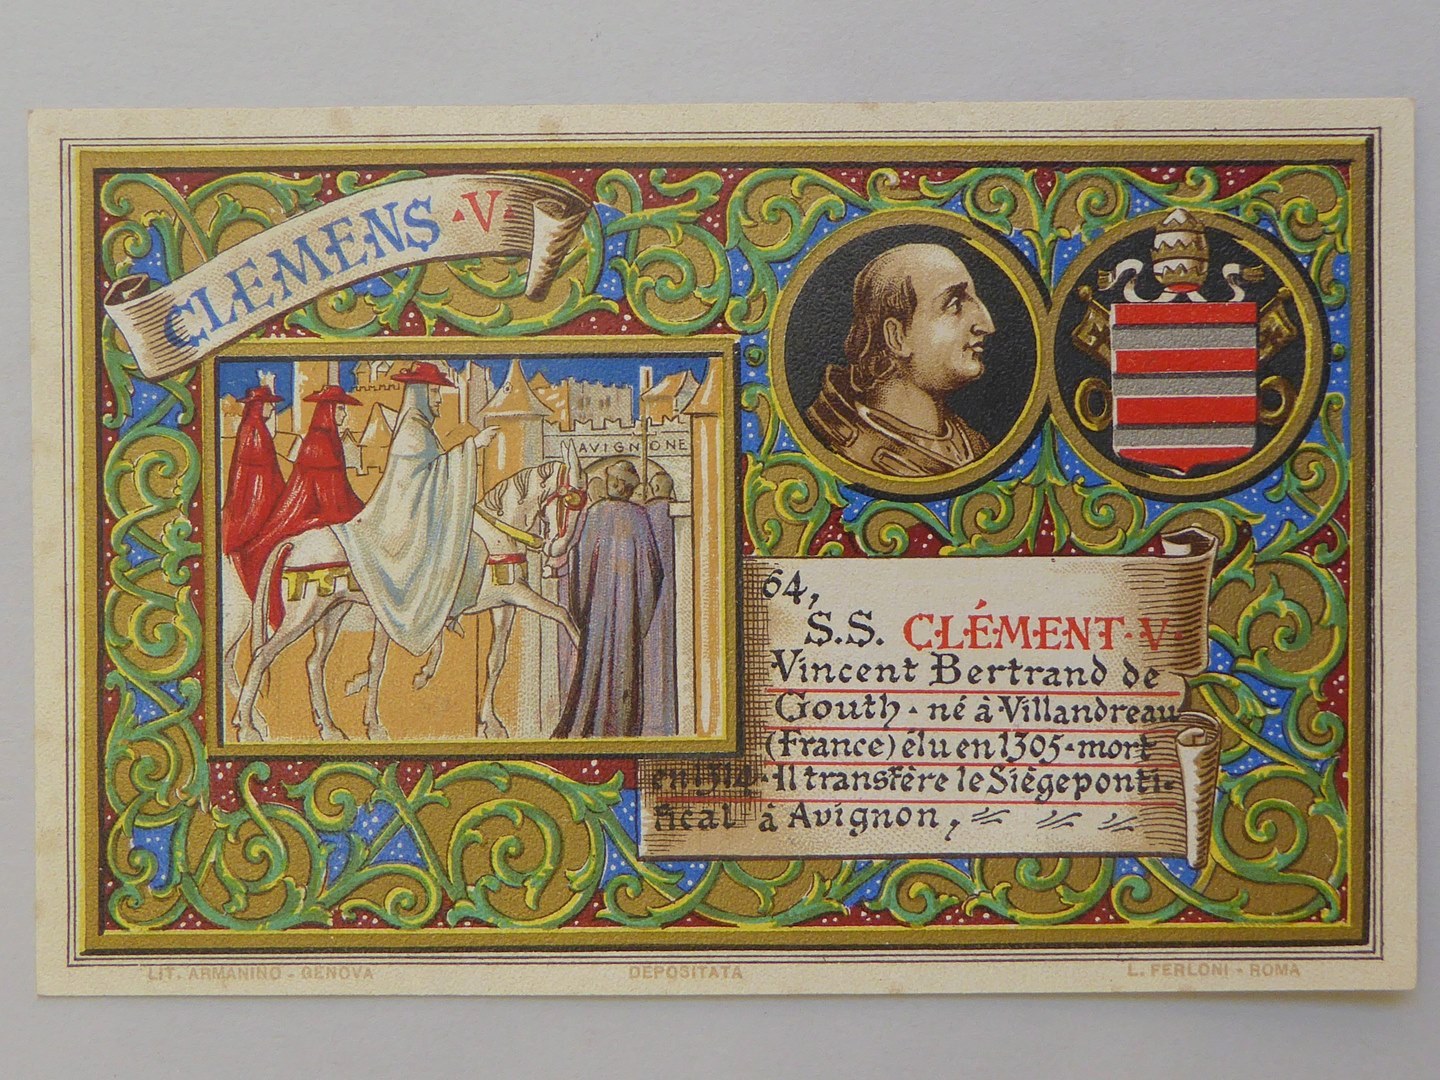 CLEMENS · V ·
AVIGNONE
64,
S.S. CLÉMENT · V ·
Vincent Bertrand de
Gouth - né à Villandreau
(France) élu en 1305 - mort
en 1314 - Il transfère le Siège ponti-
fical à Avignon,
LIT. ARMANINO - GENOVA
DEPOSITATA
L. FERLONI - ROMA